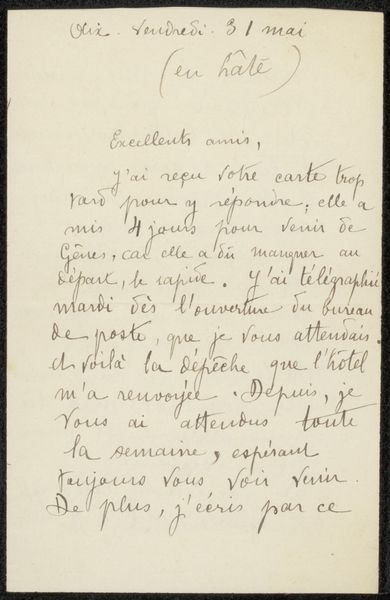 Aix. Vendredi. 31 mai
(en hâte)
Excellents amis,
J'ai reçu votre carte trop
tard pour y répondre; elle a
mis 4 jours pour venir de
Gênes, car elle a dû manquer au
départ, le rapide. J'ai télégraphié
mardi dès l'ouverture du bureau
de poste, que je vous attendais.
et voilà la dépêche que l'hôtel
m'a renvoyée. Depuis, je
vous ai attendus toute
la semaine, espérant
toujours vous voir venir.
De plus, j'écris par ce